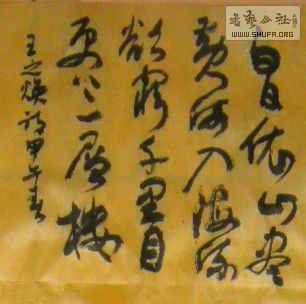 白日依山尽
黄河入海流
欲穷千里目
更上一层楼
王之焕诗甲午春
书艺公社
WWW.SHUFA.ORG